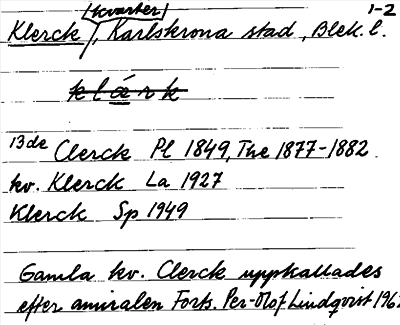 1-2
(kvarter)
Klerck, Karlskrona stad, Blek. l.
klärk
13de Clerck Pl 1849, The 1877-1882
kv. Klerck La 1927
Klerck Sp 1949
Gamla kv. Clerck uppkallades
efter amiralen Forts. Per-Olof Lindqvist 196